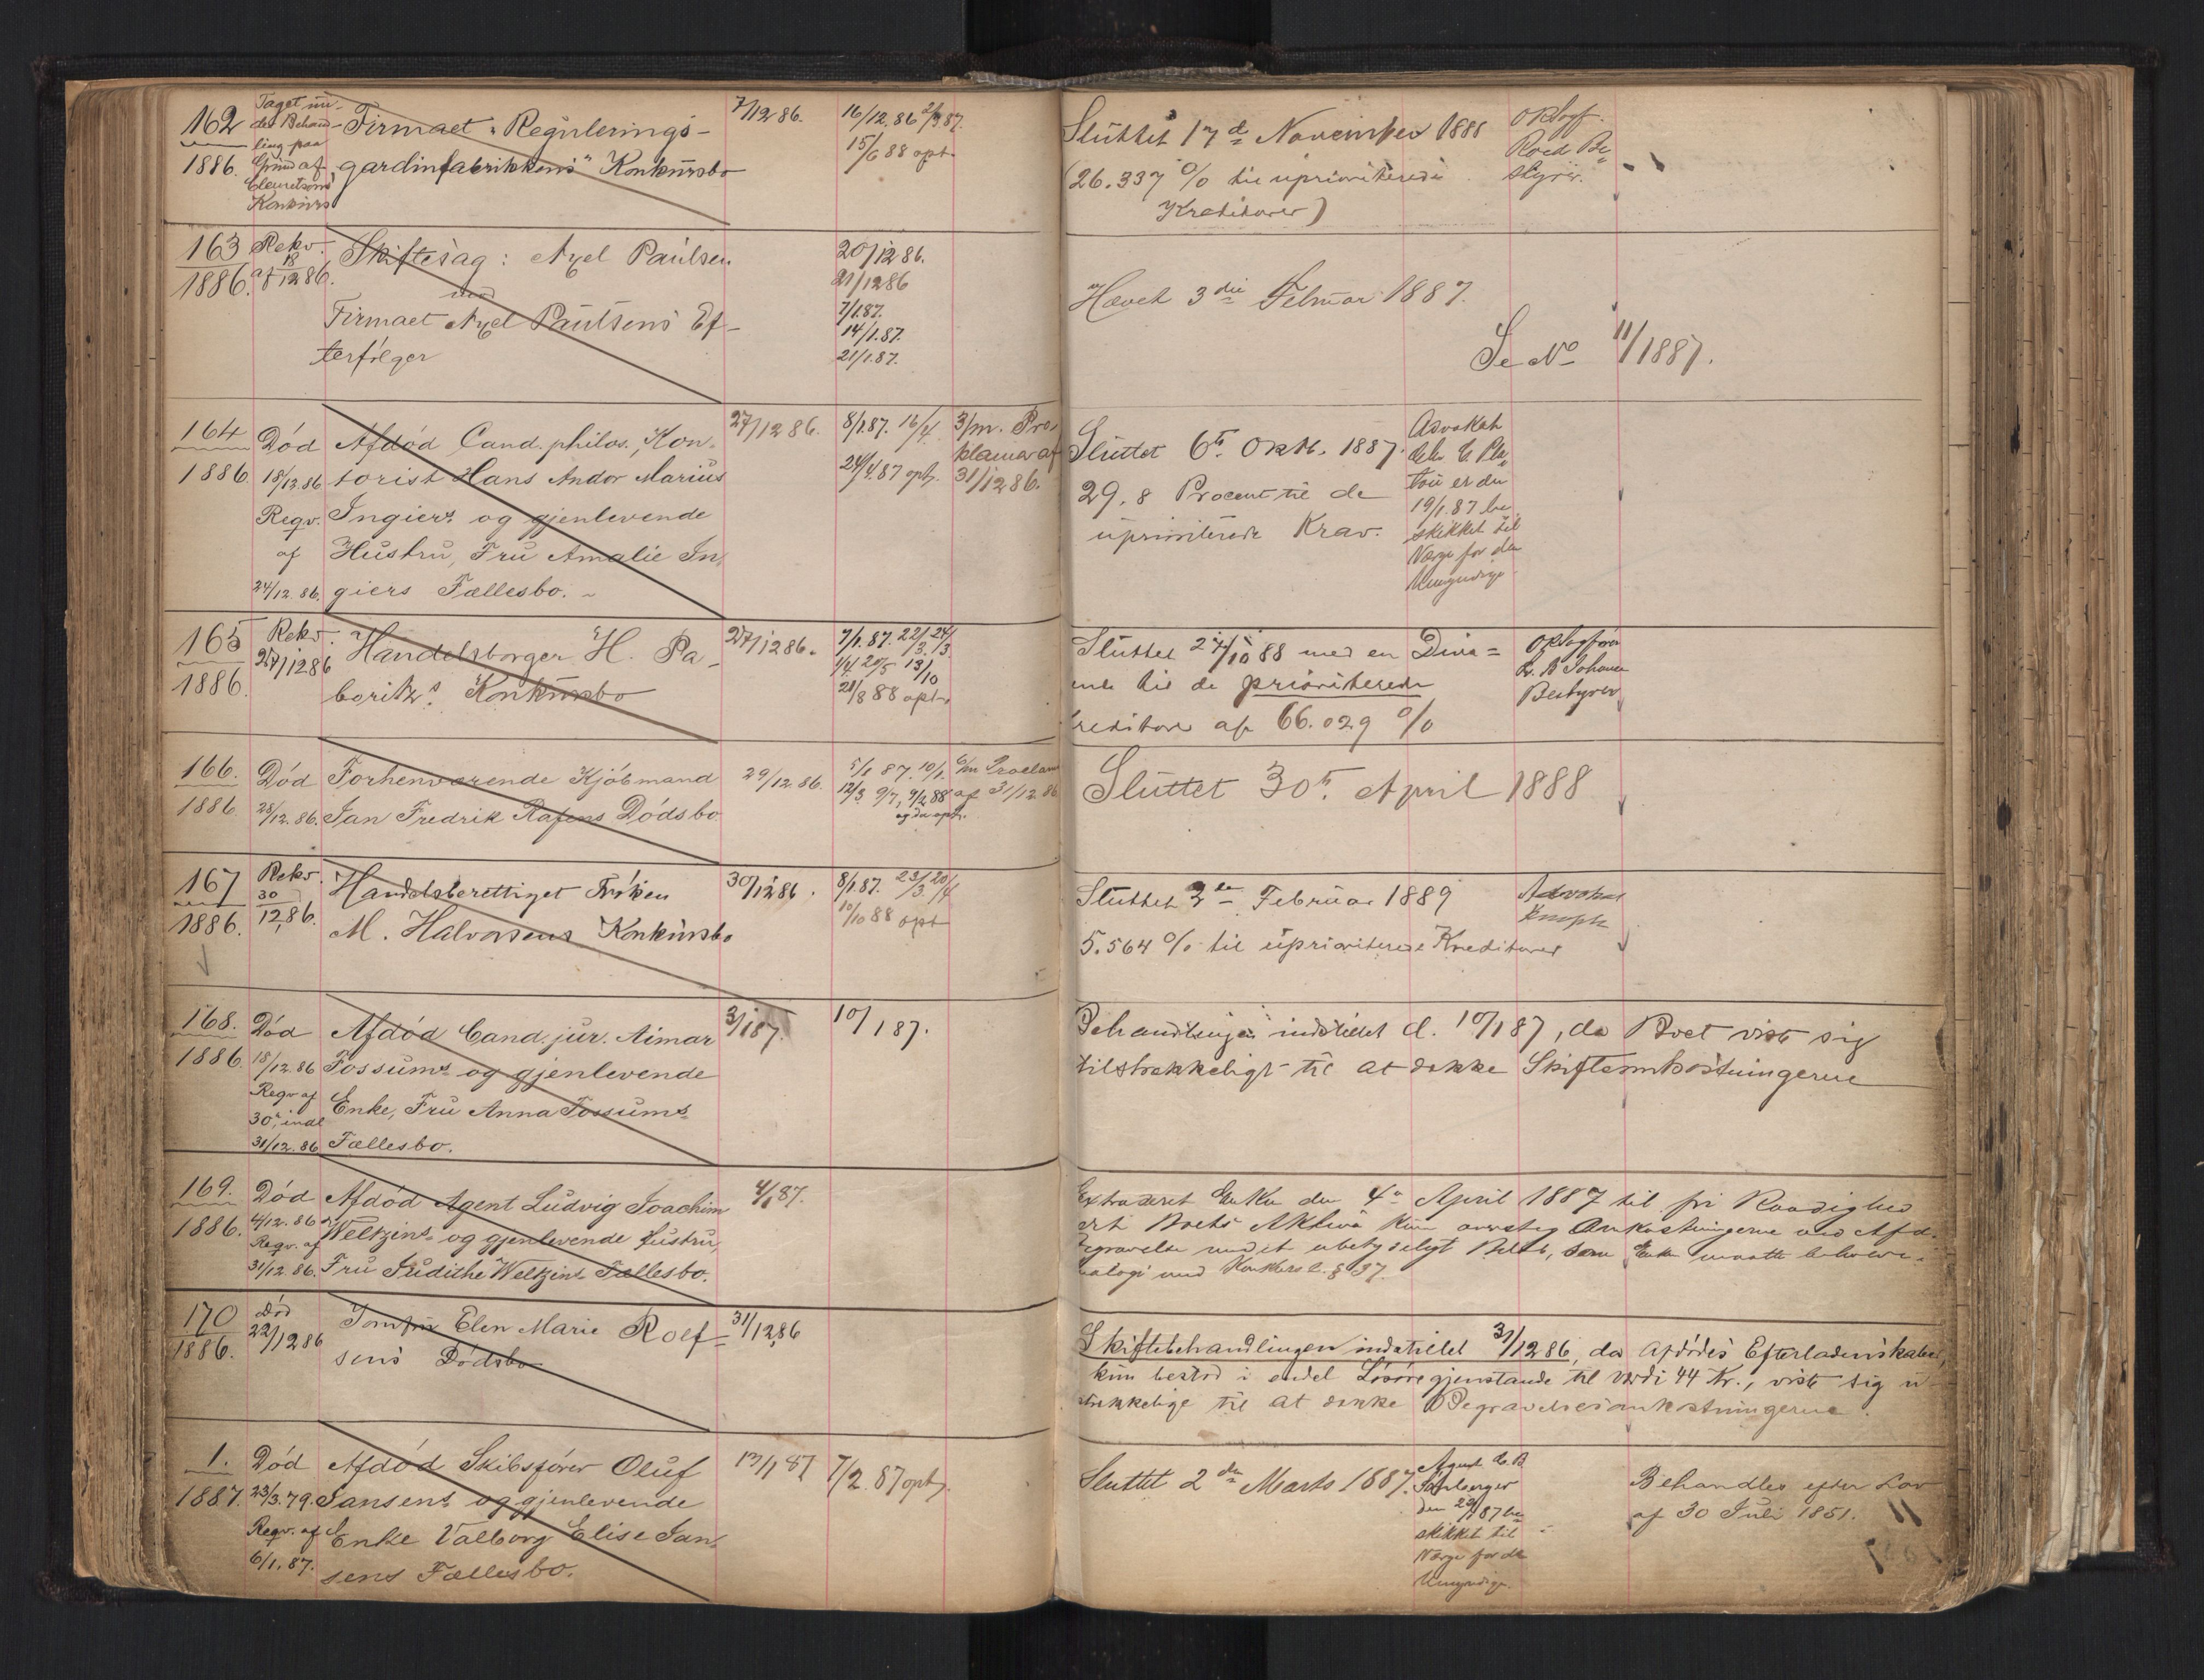 162
1886.
Taget un-
der Behand-
ling paa
Grund af
Konkurs
Firmaet "Regulerings-
gardinfabrikkens" Konkursbo
7/12 86.
16/12.86 2/3 87.
15/6 88 opt.
Sluttet 17de November 1888
(26.337 % til uprioriterede
Kreditorer)
Roed Be-
styrer.
163
1886.
Rekv.
af 18/12 86.
Skiftesag: Axel Paulsen
mod
Firmaet Axel Paulsens Ef-
terfølger
20/12 86.
21/12 86
7/1.87.
14/1.87.
21/1.87.
Hævet 3die Februar 1887.
Se No 11/1887.
164
1886.
Død
18/12.86
Reqv.
af
24/12.86.
Afdød Cand. philos., Kon-
torist Hans Andor Marius
Ingiers og gjenlevende
Hustru, Fru Amalie In-
giers Fællesbo.
27/12 86.
8/1.87. 16/4
24/4.87 opt.
3/m. Pro-
klama af
31/12 86.
Sluttet 6te Oktb. 1887.
29.8 Procent til de
uprioriterede Krav.
Advokat
Chr. C. Pla-
tou er den
19/1.87 be-
skikket til
Værge for den
Umyndige
165
1886.
Rekv.
27/12 86
Handelsborger H. Pa-
boritz's Konkursbo
27/12 86.
7/1.87. 22/3 24/3
1/4 20/5 13/10
21/8 88 opt.
Sluttet 24/10 88 med en Divi=
ende til de prioriterede
reditorer af 66.029 %
Bestyrer
166.
1886
Død
28/12.86.
Forhenværende Kjøbmand
Jan Fredrik Rafens Dødsbo
29/12.86.
5/1 87. 10/1.
12/3. 9/7, 9/2 88
og da opt.
6/m Proclama
af 31/12 86
Sluttet 30te April 1888
167
1886.
Rekv.
30/12.86.
Handelsberettiget Frøken
M. Halvorsens Konkursbo
30/12 86.
8/1.87. 23/3 20/4
10/10 88 opt
Sluttet 2den Februar 1889
5.564 % til uprioriterede Kreditorer
Advokat
168.
1886.
Død
18/12.86
Reqv af
30., indl
31/12.86
Afdød Cand. jur. Aimar
Fossums og gjenlevende
Enke, Fru Anna Fossums
Fællesbo.
3/1 87.
10/1 87.
Behandlingen indstillet d. 10/1 87, da Boet viste sig
tilstrækkeligt til at dække Skifteomkostningerne
169.
1886.
Død
4/12.86
Reqv. af
31/12 86.
Afdød Agent Ludvig Joachim
Weltzins og gjenlevende Hustru,
Fru Judithe Weltzins Fællesbo.
4/1 87.
Extraderet Enken den 4de April 1887 til fri Raadighed
Boets Aktiva kun oversteg Omkostningerne ved Afd.
egravelse med et ubetydeligt Beløb, som Enken maatte beholde
alogi med Konkursl. § 37.
170
1886.
Død
22/12 86
Jomfru Elen Marie Rolf-
sens Dødsbo
31/12 86
Skiftebehandlingen indstillet 31/12 86, da Afdødes Efterladenskaber,
kun bestod i endel Løsøregjenstande til Værdi 44 Kr., viste sig u-
trækkelige til at dække Begravelsesomkostningerne.
1.
1887.
Død
23/3.79.
Reqv. af
6/1.87.
Afdød Skibsfører Oluf
Jansens og gjenlevende
Enke Valborg Elise Jan-
sens Fællesbo.
13/1 87
7/2.87 opt.
Sluttet 2den Marts 1887.
Agent
den 22/1 87 be-
skikket til
Værge for de
Umyndige.
Behandles efter Lov
af 30 Juli 1851.